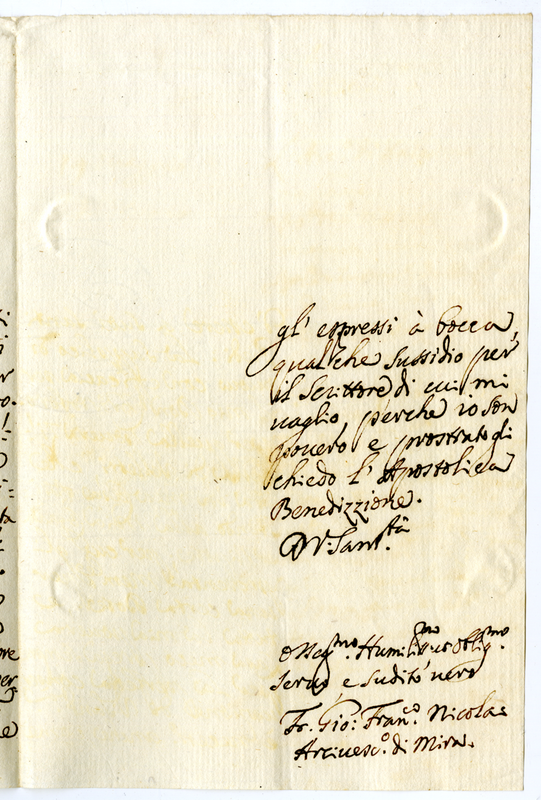 gl' espressi à bocca,
qualche sussidio per
il Scrittore di cui mi
vaglio, perche io son
povero e prostrato gli
chiedo l' Apostolica
Benedizzione.
D V: Sant.tà
Osseq.mo Humiliss.mo et Oblig.mo
servo e sudito vero
Fr. Gio: Fran.co Nicolai
Arcivesc.o di Mira.